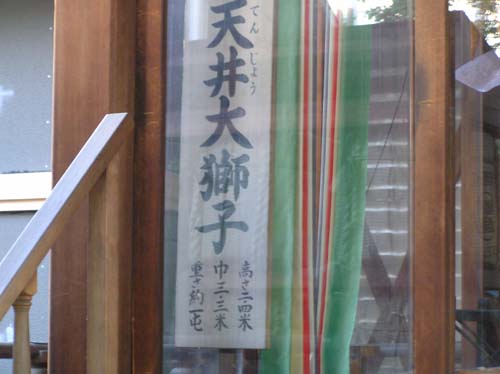 天井大獅子
てんじょう
高さ二・四米
巾三・三米
重さ約一屯